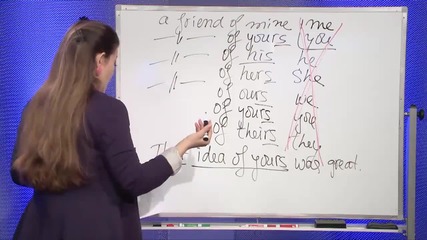 a friend of mine me
—"— of yours you
—"— of his he
—"— of hers she
of ours we
of yours you
of theirs they
idea of yours was great.